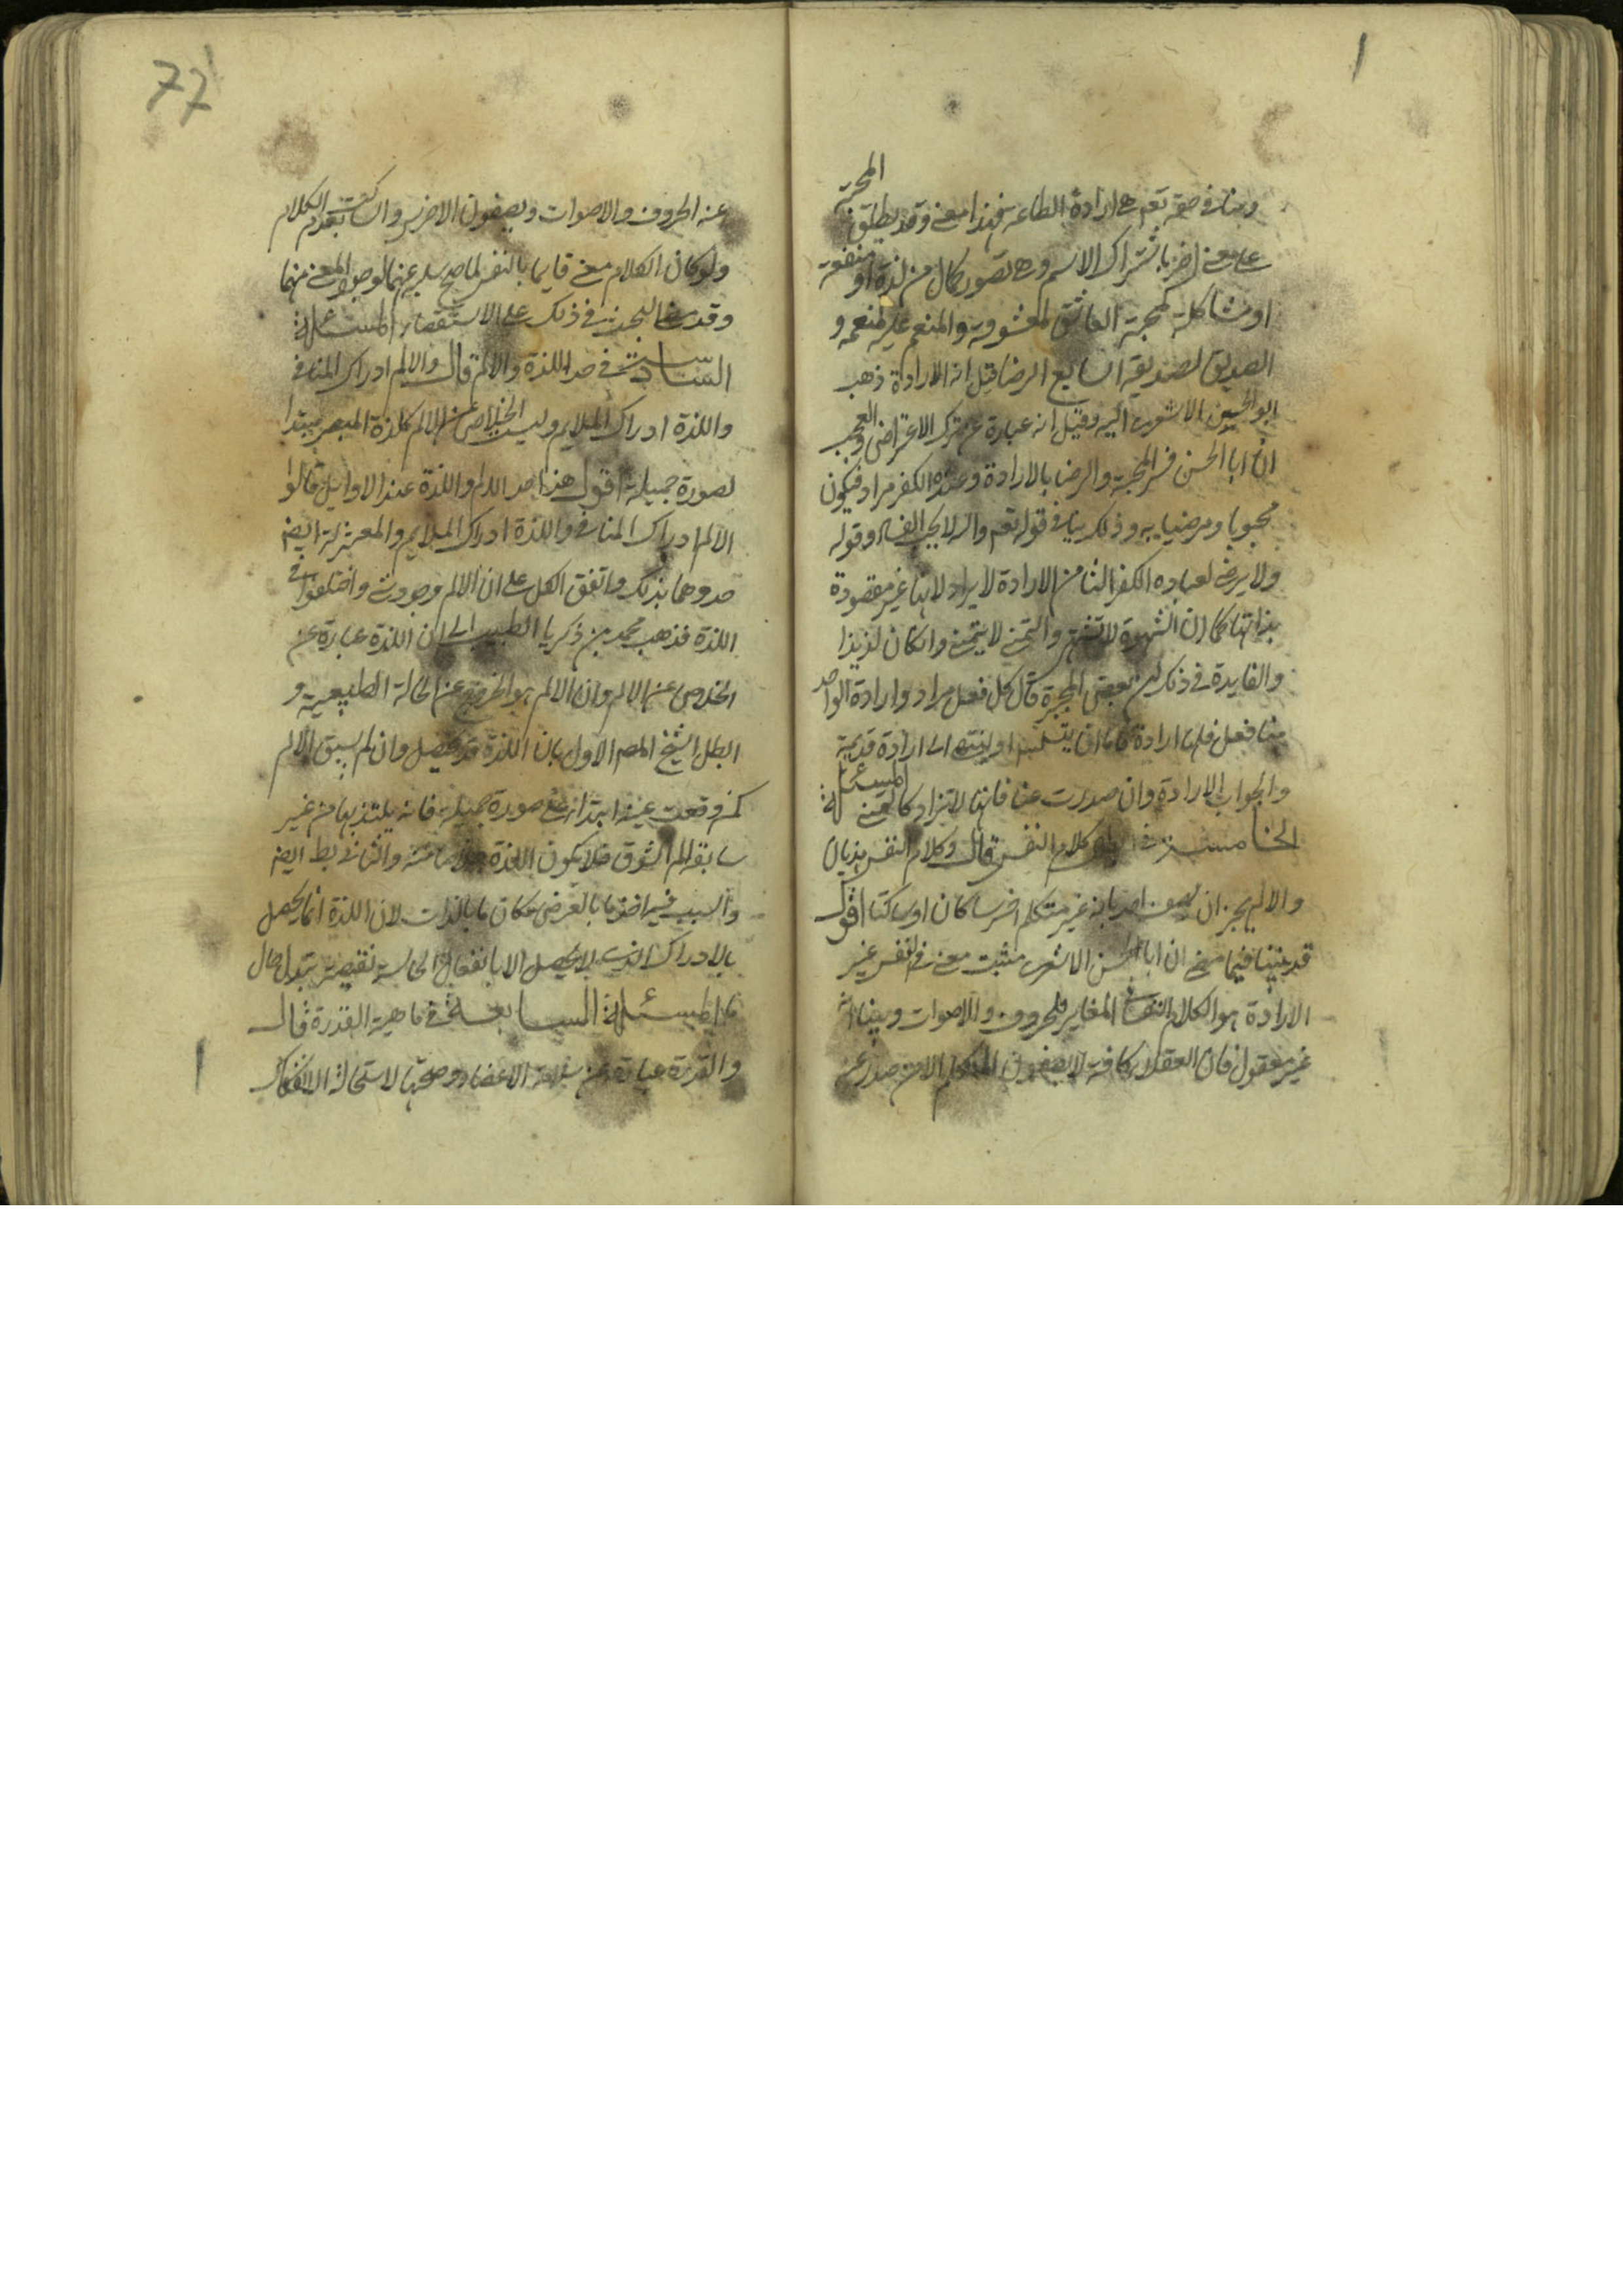 1
ومنا في حقه تعم هي ارادة الطاعة فهذا معنى وقد يطلق المحبة
على معنى اخر باشتراك الاسم وهي تصور كمال من لذة او منفعة
او مشاكلة كمحبة العاشق لمعشوقه والمنعم عليه لمنعمه و
الصديق لصديقه السابع الرضا قيل انه الارادة ذهب
ابو الحسن الاشعرى اليه وقيل انه عبارة عن ترك الاعتراض والعجب
ان ابا الحسن فسر المحبة والرضا بالارادة وعنده الكفر مراد فيكون
محبوبا ومرضيا به وذلك ينافي قوله تعم والله لا يحب الفساد وقوله
ولا يرضى لعباده الكفر الثامن الارادة لا يراد لانها غير مقصودة
بذاتها كما ان الشهوة لا تشتهى والتمنى لا يتمنى وان كان لذيذا
والفايدة في ذلك ان بعض المجبرة قال كل فعل مراد وارادة الواحد
منا فعل فلها ارادة فاما ان يتسلسل او ينتهى الى ارادة قديمة
والجواب الارادة وان صدرت عنا فانها لا تراد كالتمنى المسئلة
الخامسة في كلام النفس قال وكلام النفس هذيان
والا لم يجز ان يصف احد بانه غير متكلم اخرسا كان او ساكتا اقول
قد بينا فيما مضى ان ابا الحسن الاشعرى مثبت معنى في النفس غير
الارادة هو الكلام النفسانى المغاير للحروف والاصوات وبينا انه
غير معقول فان العقلاء كافة لا يصفون المتكلم الا من صدر عنه
77
عنه الحروف والاصوات ويصفون الاخرس والساكت بعدم الكلام
ولو كان الكلام معنى قايما بالنفس لما صح سلبه عنهما لوجود المعنى منهما
وقد سلف البحث في ذلك على الاستقصاء المسئلة
السادسة في حد اللذة والالم قال والالم ادراك المنافى
واللذة ادراك الملايم وليست الخلاص عن الالم كلذة المبصر مبتدا
لصورة جميلة اقول هذا حد الالم واللذة عند الاوايل قالوا
الالم ادراك المنافى واللذة ادراك الملايم والمعتزلة ايضا
حدوهما بذلك واتفق الكل على ان الالم وجودى واختلفوا في
اللذة فذهب محمد بن زكريا الطبيب الى ان اللذة عبارة عن
الخلاص عن الالم وان الالم هو الخروج عن الحالة الطبيعية و
ابطل الشيخ المصم الاول بان اللذة قد تحصل وان لم يسبق الالم
كمن وقعت عينه ابتداء على صورة جميلة فانه يلتذ بها من غير
سابقة الم الشوق فلا يكون اللذة خلاصا منه والثانى بط ايضا
والسبب فيه اخذ ما بالعرض مكان ما بالذات لان اللذة انما تحصل
بالادراك الذى لا يحصل الا بانفعال الحاسة نقيضه تبدل حال
ما المسئلة السابعة في ماهية القدرة قال
والقدرة عبارة عن سلامة الاعضاء وصحتها لاستحالة الانفكاك